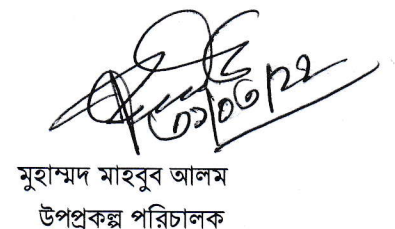 ৩১/০৩/২২
মুহাম্মদ মাহবুব আলম
উপপ্রকল্প পরিচালক